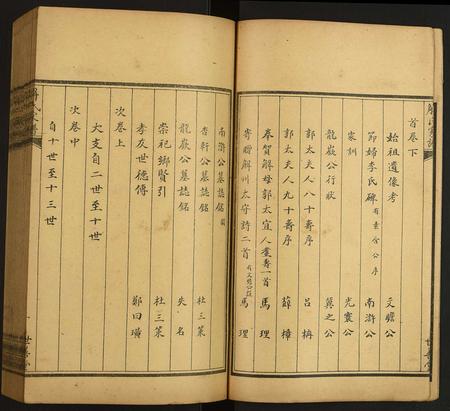 首卷下
始祖遺像考 文瞻公
節婦李氏碑 有壺合公序 南滸公
家訓 光寰公
龍嶽公行狀 箕之公
郭太夫人八十壽序 呂柟
郭太夫人九十壽序 薛樟
奉賀解母郭太宜人臺壽一首 馬理
寄贈解州太守詩二首 馬理
南滸公墓誌銘
杏軒公墓誌銘 杜三策
龍嶽公墓誌銘 失名
崇祀鄉賢引 杜三策
孝友世德傳 鄭曰璜
次卷上
大支自二世至十世
次卷中
自十世至十三世
世善堂